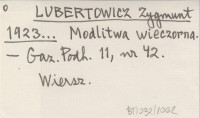 LUBERTOWICZ Zygmunt
1923... Modlitwa wieczorna.
— Gaz. Podh. 11, nr 42.
Wiersz.